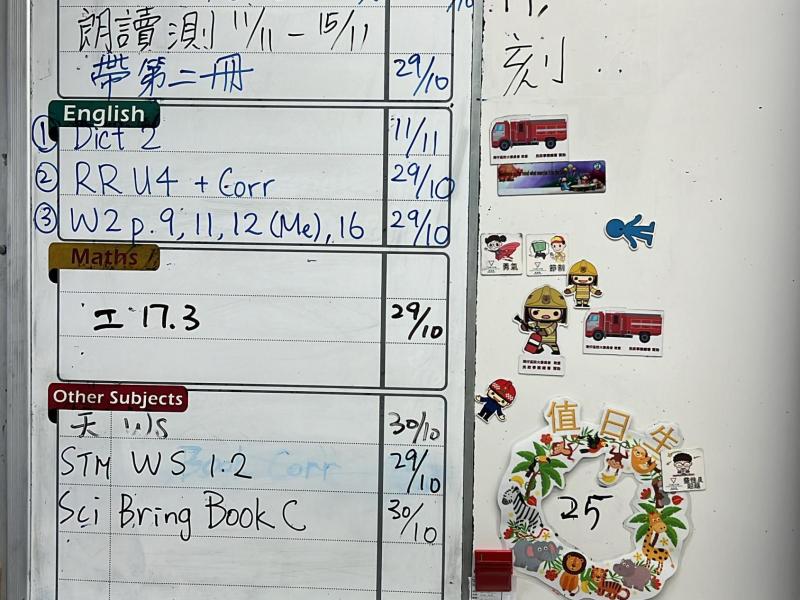 朗讀測 11/11 - 15/11
帶第二冊 29/10
English
① Dict 2 11/11
② RR U4 + Corr 29/10
③ W2 p. 9, 11, 12 (Me), 16 29/10
Maths
工 17.3 29/10
Other Subjects
WS 30/10
STM WS 1.2 29/10
Sci Bring Book C 30/10
刻
勇氣
節制
值日生
25